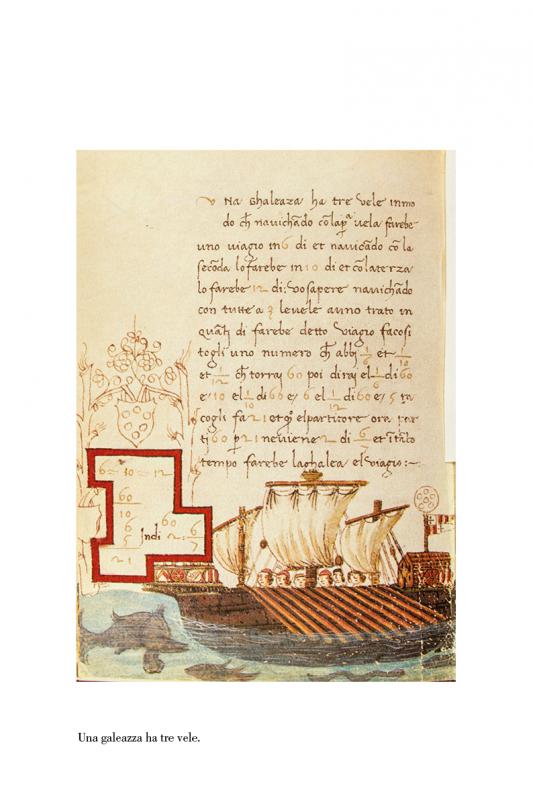 Na Ghaleaza ha tre vele inmo
do ch̃ navichãdo cõlapᵃ vela farebe
uno viagio in 6 di et navicãdo cõ la
secõda lo farebe in 10 di et cõlaterza
lo farebe 12 di: vo sapere navichãdo
con tutte a 3 le vele auno trato in
quãti di farebe detto viagio fa cosi
togli uno numero ch̃ abbj 1/6 et 1/10
et 1/12 ch̃ torraj 60 poi diraj el 1/6 di 60
e 10 el 1/10 di 60 e 6 el 1/12 di 60 e 5 ra
cogli fa 21 et q° el partitore ora par
ti 60 p 21 neviene 2 di 6/7 et ĩtãto
tempo farebe laghalea el viagio:~
6 10 12
60
10
6
5
21
Indi
60
2 : 6/7
Una galeazza ha tre vele.